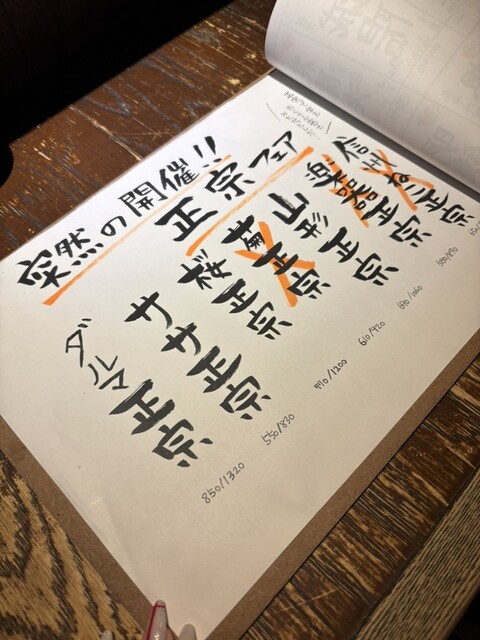 突然の開催!!
正宗フェア
正宗
楽器正宗
580/870
山形正宗
690/1060
菊正宗
610/920
桜正宗
770/1200
ササ正宗
550/830
ダルマ正宗
850/1320